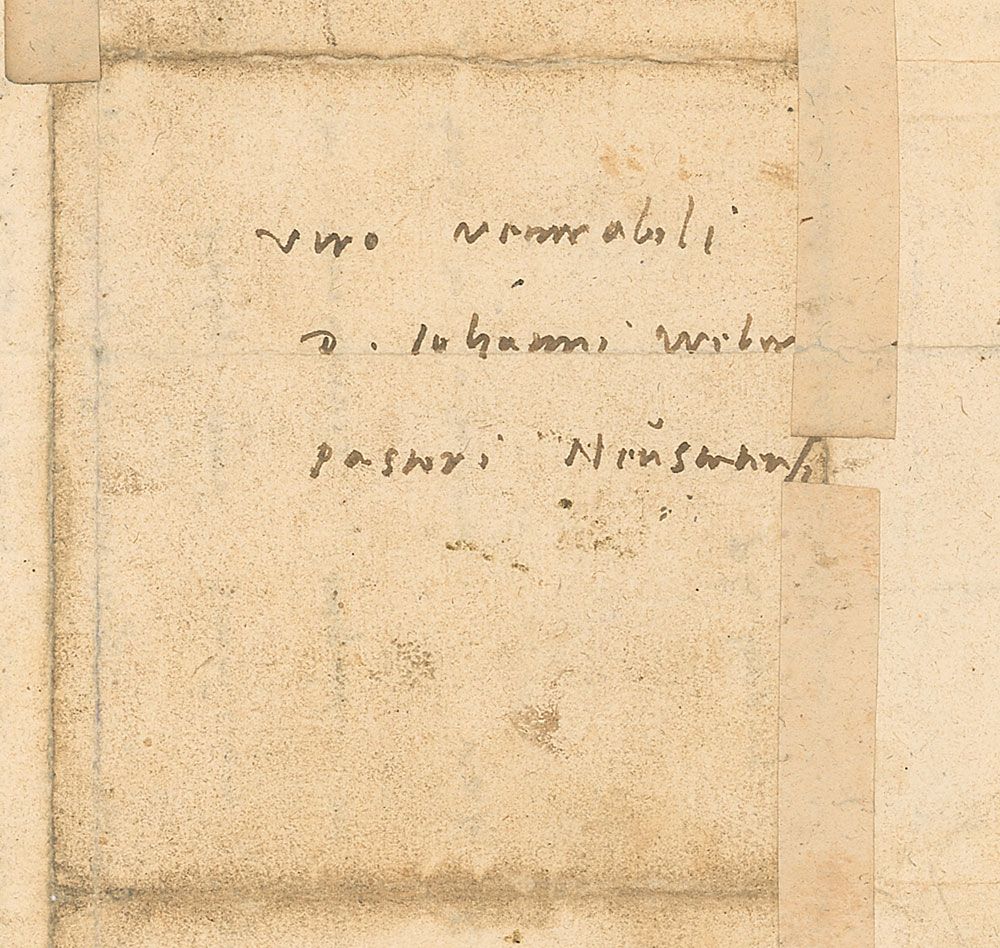 viro venerabili
D. Iohanni Weber
pastori